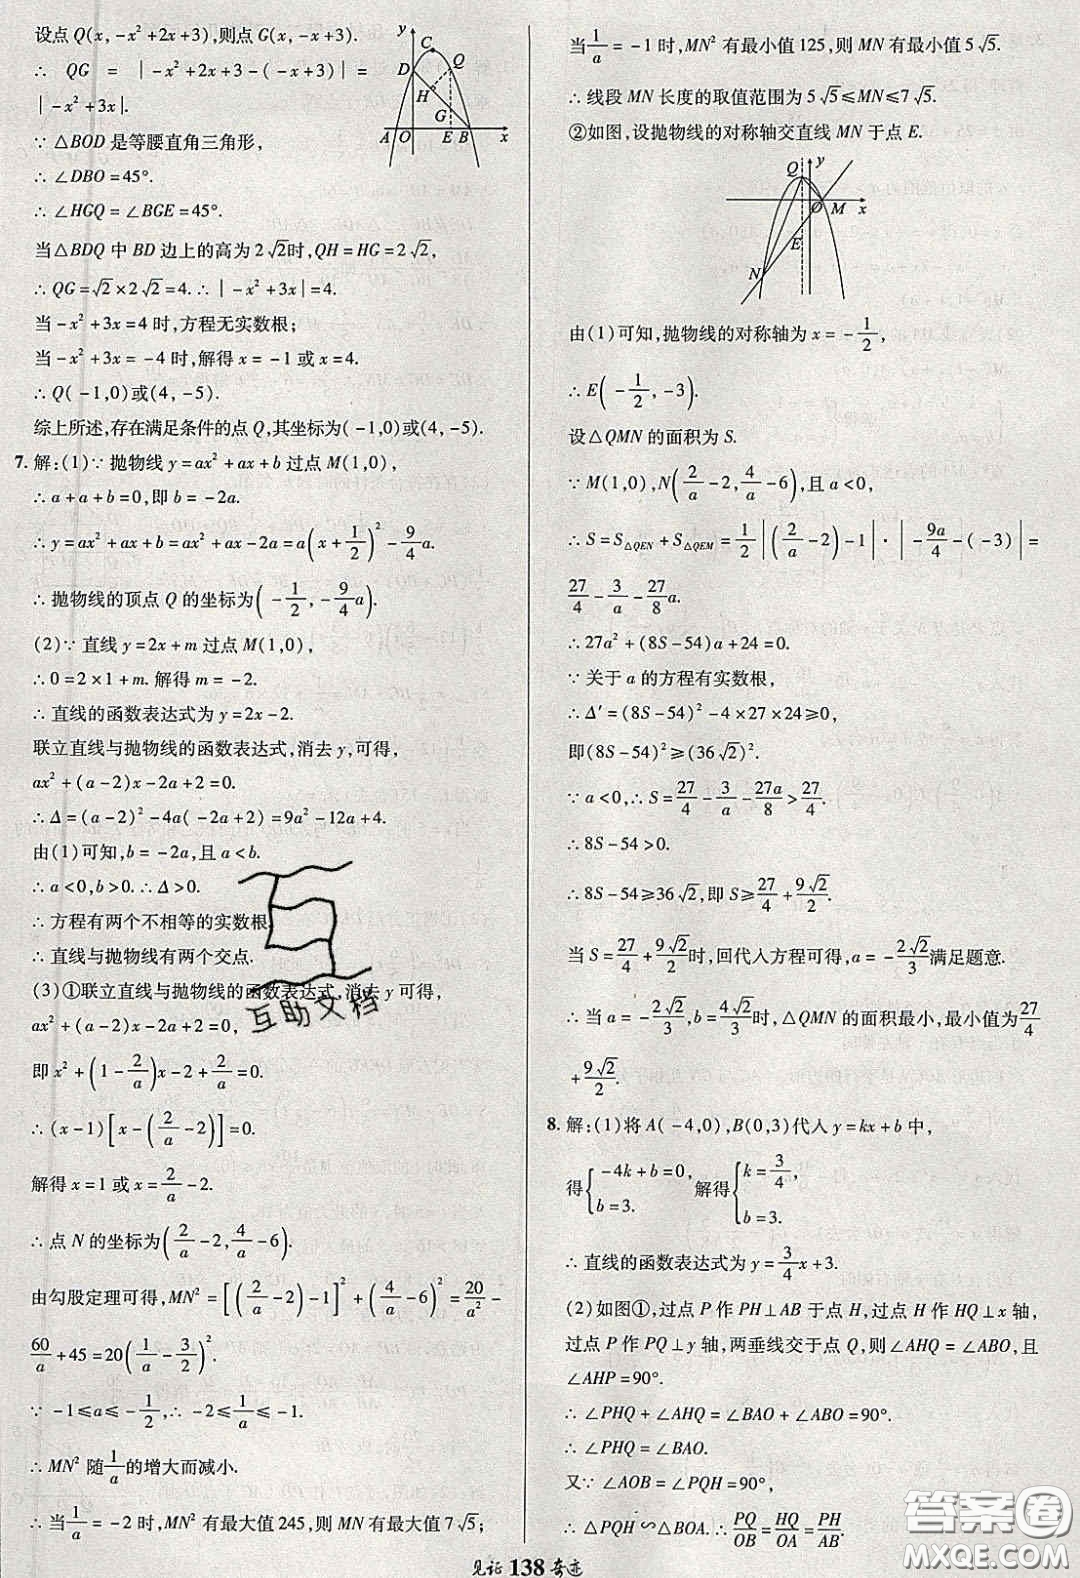 设点 Q(x, -x²+2x+3),则点G(x, -x+3).
∴ QG = |-x²+2x+3-(-x+3)| =
|-x²+3x|.
∵ △BOD 是等腰直角三角形,
∴ ∠DBO=45°.
∴ ∠HGQ=∠BGE=45°.
当△BDQ 中 BD 边上的高为2√2时,QH=HG=2√2,
∴ QG=√2×2√2=4. ∴ |-x²+3x|=4.
当-x²+3x=4 时,方程无实数根;
当-x²+3x=-4 时,解得 x=-1或x=4.
∴ Q(-1,0)或(4,-5).
综上所述,存在满足条件的点 Q,其坐标为(-1,0)或(4,-5).
y
C
D
Q
H
G
A O E B x
7. 解:(1)∵ 抛物线 y=ax²+ax+b 过点 M(1,0),
∴ a+a+b=0,即 b=-2a.
∴ y=ax²+ax+b=ax²+ax-2a=a(x+1/2)²-9/4a.
∴ 抛物线的顶点 Q 的坐标为(-1/2,-9/4a).
(2)∵ 直线 y=2x+m 过点 M(1,0),
∴ 0=2×1+m. 解得 m=-2.
∴ 直线的函数表达式为 y=2x-2.
联立直线与抛物线的函数表达式,消去 y,可得,
ax²+(a-2)x-2a+2=0.
∴ Δ=(a-2)²-4a(-2a+2)=9a²-12a+4.
由(1)可知,b=-2a,且 a<b.
∴ a<0,b>0. ∴ Δ>0.
∴ 方程有两个不相等的实数根.
∴ 直线与抛物线有两个交点.
(3)①联立直线与抛物线的函数表达式,消去 y 可得,
ax²+(a-2)x-2a+2=0,
即 x²+(1-2/a)x-2+2/a=0.
∴ (x-1)[x-(2/a-2)]=0.
解得 x=1 或 x=2/a-2.
∴ 点 N 的坐标为(2/a-2,4/a-6).
由勾股定理可得,MN²=[(2/a-2)-1]²+(4/a-6)²=20/a²-
60/a+45=20(1/a-3/2)².
∵ -1≤a≤-1/2,∴ -2≤1/a≤-1.
∴ MN² 随1/a的增大而减小.
∴ 当1/a=-2 时,MN² 有最大值 245,则 MN 有最大值 7√5;
互助文档
当1/a=-1 时,MN² 有最小值 125,则 MN 有最小值 5√5.
∴ 线段 MN 长度的取值范围为 5√5≤MN≤7√5.
②如图,设抛物线的对称轴交直线 MN 于点 E.
Q y
O M x
E
N
由(1)可知,抛物线的对称轴为 x=-1/2,
∴ E(-1/2,-3).
设△QMN 的面积为 S.
∵ M(1,0),N(2/a-2,4/a-6),且 a<0,
∴ S=S△QEN+S△QEM=1/2|(2/a-2)-1|·|-9a/4-(-3)|=
27/4-3/a-27/8a.
∴ 27a²+(8S-54)a+24=0.
∵ 关于 a 的方程有实数根,
∴ Δ′=(8S-54)²-4×27×24≥0,
即(8S-54)²≥(36√2)².
∵ a<0,∴ S=27/4-3/a-27a/8>27/4.
∴ 8S-54>0.
∴ 8S-54≥36√2,即 S≥27/4+9√2/2.
当 S=27/4+9√2/2时,回代入方程可得,a=-2√2/3满足题意.
∴ 当 a=-2√2/3,b=4√2/3时,△QMN 的面积最小,最小值为27/4
+9√2/2.
8. 解:(1)将 A(-4,0),B(0,3)代入 y=kx+b 中,
得{-4k+b=0, b=3. 解得{k=3/4, b=3.
∴ 直线的函数表达式为 y=3/4x+3.
(2)如图①,过点 P 作 PH⊥AB 于点 H,过点 H 作 HQ⊥x 轴,
过点 P 作 PQ⊥y 轴,两垂线交于点 Q,则∠AHQ=∠ABO,且
∠AHP=90°.
∴ ∠PHQ+∠AHQ=∠BAO+∠ABO=90°.
∴ ∠PHQ=∠BAO.
又∵ ∠AOB=∠PQH=90°,
∴ △PQH∽△BOA. ∴ PQ/OB=HQ/OA=PH/AB.
见证138奇迹
答案圈
MXQE.COM